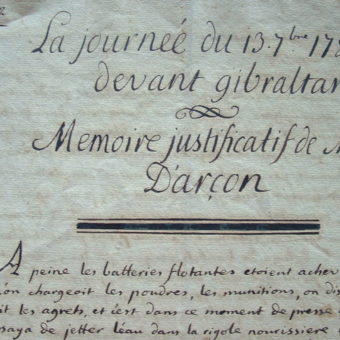 La journeé du 13. 7.bre 178
devant gibraltar
Memoire justificatif de M
D'arçon
A peine les batteries flotantes etoient achev
ion chargeoit les poudres, les munitions, on dis
it les agrets, et c'est dans ce moment de presse
saya de jetter léau dans la rigole nourissiere